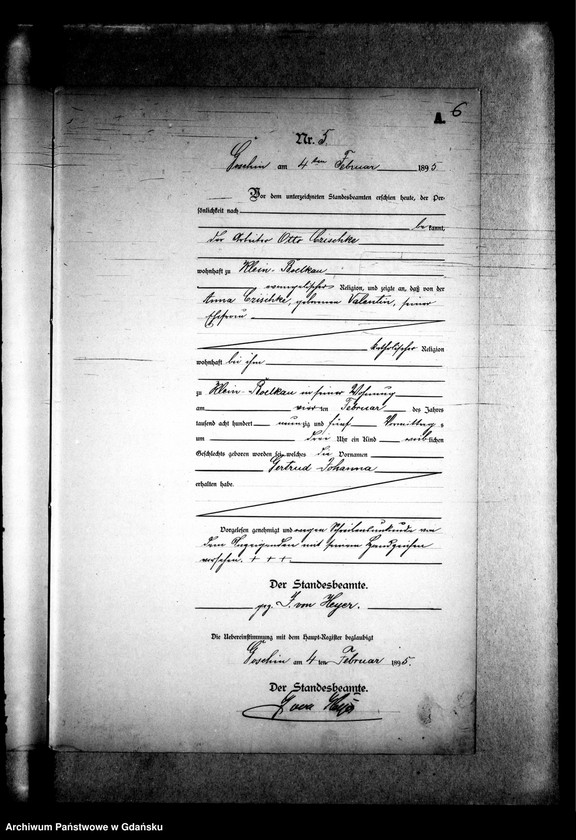 A. 6
Nr. 5.
Goschin am 4ten Februar 1895.
Vor dem unterzeichneten Standesbeamten erschien heute, der Per-
sönlichkeit nach
be kannt,
der Arbeiter Otto Czischke
wohnhaft zu Klein-Boelkau
evangelischer Religion, und zeigte an, daß von der
Anna Czischke, geborenen Valentin, seiner
Ehefrau
katholischer Religion
wohnhaft bei ihm
zu Klein-Boelkau in seiner Wohnung
am vierten Februar des Jahres
tausend acht hundert neunzig und fünf Vormittags
um drei Uhr ein Kind weiblichen
Geschlechts geboren worden sei, welches die Vornamen
Gertrud Johanna
erhalten habe.
Vorgelesen, genehmigt und wegen Schreibensunkunde von
dem Anzeigenden mit seinem Handzeichen
versehen. + + +
Der Standesbeamte.
gez. J. von Heyer.
Die Uebereinstimmung mit dem Haupt-Register beglaubigt
Goschin am 4ten Februar 1895.
Der Standesbeamte.
J von Heyer
Archiwum Państwowe w Gdańsku